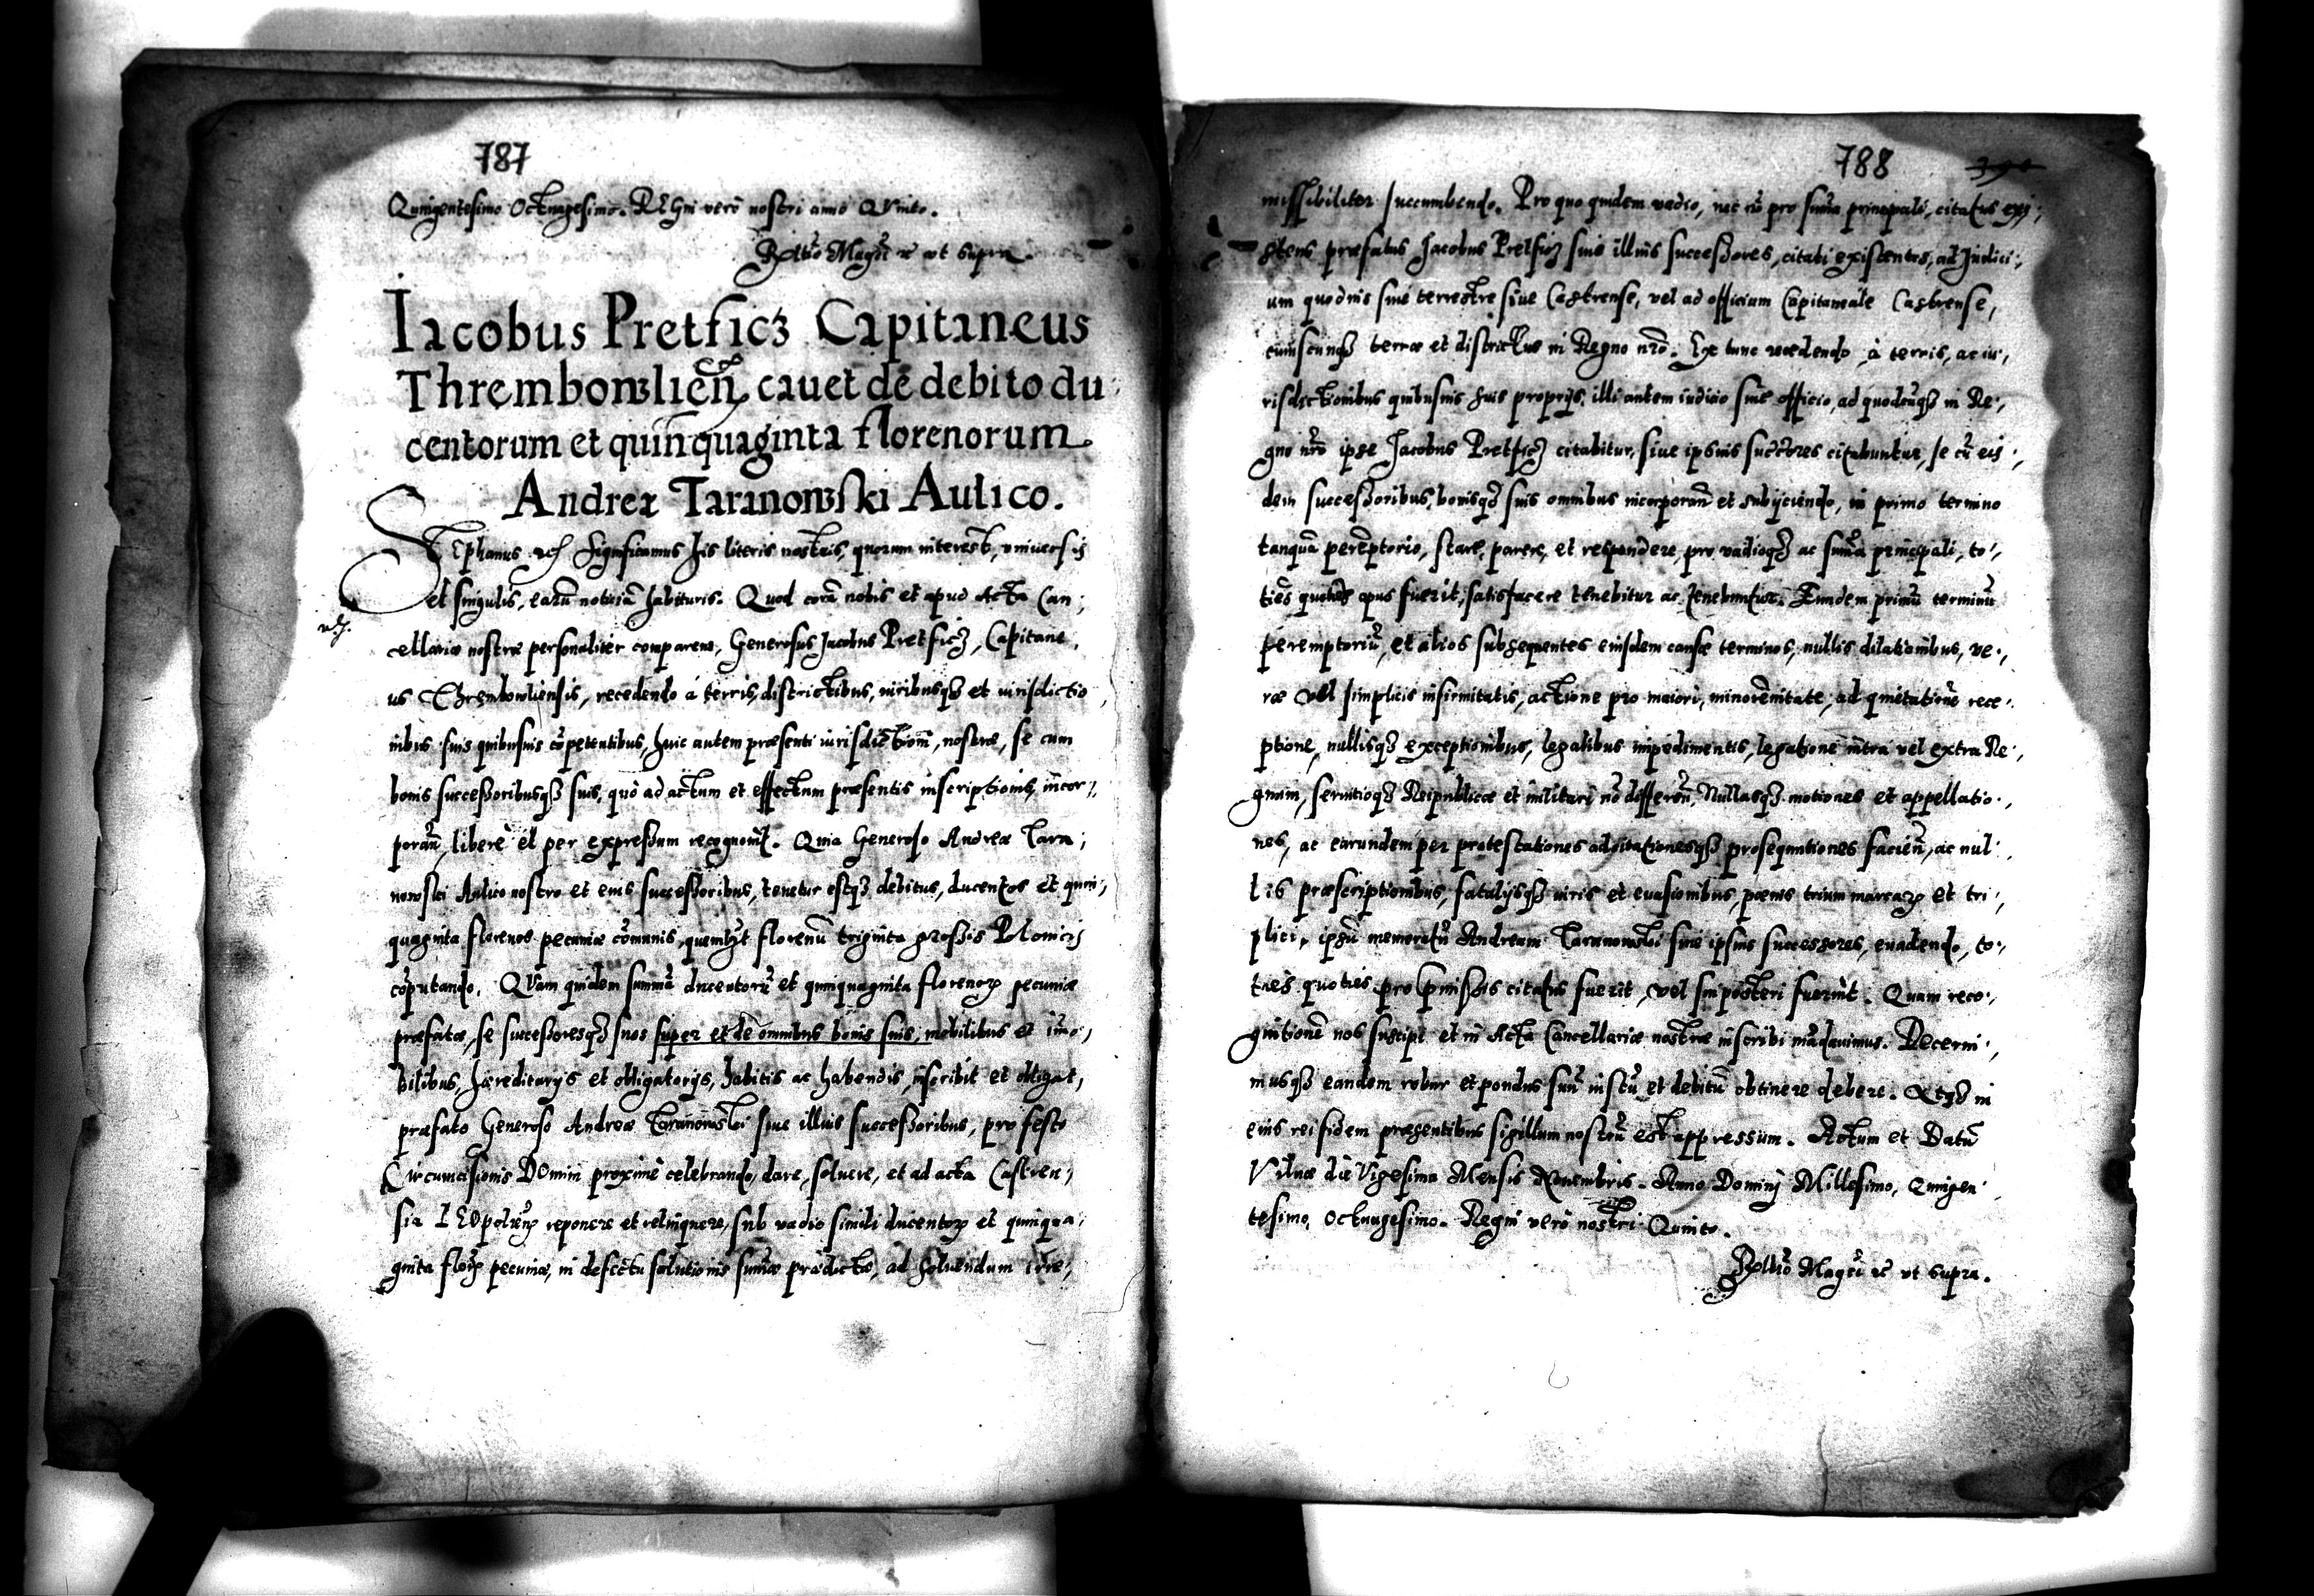 787
Quingentesimo Octuagesimo. REGni verò nostri anno QVinto.
Rltio Magci &c ut supra.
Iacobus Pretficz Capitaneus
Thrembowlień cauet de debito du,
centorum et quinquaginta florenorum
Andreæ Taranowski Aulico.
STEphanus &c Significamus his literis nostris, quorum interest, vniuersis
et singulis, earũ notitiã habituris. Quod corã nobis et apud Acta Can,
cellariæ nostræ personaliter comparens, Generosus Jacobus Pretficz, Capitane,
us Thrembowliensis, recedendo à terris, districtibus, iuribusq3 et iurisdictio,
nibus suis quibusuis cõpetentibus, huic autem præsenti iurisdictioni, nostræ, se cum
bonis successoribusq3 suis, quò ad actum et effectum præsentis inscriptionis, incor,
porañ, libere et per expressum recognouit. Quia Generoso Andreæ Tara,
nowski Aulico nostro et eius successoribus, tenetur estq3 debitus, ducentos et quin,
quaginta florenos pecuniæ cõmunis, quemlibet florenũ triginta grossis Plonicis
cõputando. QVam quidem summã ducentorũ et quinquaginta florenorz pecuniæ
præfatæ, se successoresq3 suos super et de omnibus bonis suis, mobilibus et imo,
bilibus, hæreditarijs et obligatorijs, habitis ac habendis, inscribit et obligat,
præfato Generoso Andreæ Taranowski siue illius successoribus, pro festo
Circumcisionis DOmini proximè celebrando, dare, soluere, et ad acta Castren,
sia LEOpolień reponere et relinquere, sub vadio simili ducentorz et quinqua,
ginta florz pecuniæ, in defectu solutionis sum̃æ prædictæ, ad soluendum irre,
788
missibiliter succumbendo. Pro quo quidem vadio, nec nõ pro sum̃a principali, citatus exi,
stens præfatus Jacobus Pretficz siue illius successores, citati existentes, ad Judici,
um quoduis siue terrestre siue Castrense, vel ad officium Capitaneale Castrense,
cuiuscunq3 terræ et districtus in Regno nrõ. Ex tunc recedendo à terris, ac iu,
risdictionibus quibusuis suis proprijs, illi autem iudicio siue officio, ad quodcũq3 in Re,
gno nrõ ipse Jacobus Pretficz citabitur, siue ipsius succõres citabuntur, se cũ eis,
dem successoribus, bonisq3 suis omnibus incorporañ et subijciendo, in primo termino
tanquã perẽptorio, stare, parere, et respondere, pro vadioq3 ac sum̃a principali, to,
ties quoties opus fuerit, satisfacere tenebitur ac tenebuntur. Eundem primũ terminũ
peremptoriũ, et alios subsequentes eiusdem causæ terminos, nullis dilationibus, ve,
ræ vel simplicis infirmitatis, actione pro maiori, minorennitate, ad quietationẽ rece,
ptione, nullisq3 exceptionibus, legalibus impedimentis, legatione intra vel extra Re,
gnum, seruitioq3 Reipublicæ et militari nõ differeñ, Nullasq3 motiones et appellatio,
nes, ac earundem per protestationes adcitationesq3 prosequutiones facień, ac nul
lis præscriptionibus, fatalijsq3 iuris et euasionibus, pœnis trium marcarz et tri,
plici, ipsũ memoratũ Andream Taranowski siue ipsius successores, euadendo, to,
ties quoties pro præmissis citatus fuerit, vel sui posteri fuerint. Quam reco,
gnitionẽ nos suscipi et in Acta Cancellariæ nostræ inscribi mãdauimus. Decerni,
musq3 eandem robur et pondus suũ iustũ et debitũ obtinere debere. Atq3 in
eius rei fidem præsentibus sigillum nostrũ est appressum. Actum et Datũ
Vilnæ die Vigesima Mensis Nouembris. Anno Domini Millesimo, Quingen
tesimo, Octuagesimo. Regni verò nostri Quinto.
Rltio Magci &c vt supra.